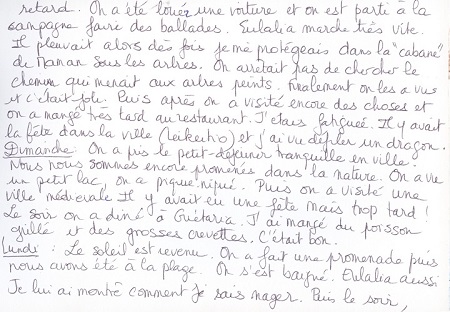 retard. On a été louer une voiture et on est parti à la
campagne faire des ballades. Eulalia marche très vite.
Il pleuvait alors des fois je me protégeais dans la "cabane"
de Maman sous les arbres. On arretait pas de chercher le
chemin qui menait aux arbres peints. Finalement on les a vus
et c'était joli. Puis après on a visité encore des choses et
on a mangé très tard au restaurant. J'étais fatiguée. Il y avait
la fête dans la ville (Leikeitio) et j'ai vu défiler un dragon.
Dimanche. On a pris le petit-déjeuner tranquille en ville.
Nous nous sommes encore promenés dans la nature. On a vu
un petit lac, on a pique-niqué. Puis on a visité une
ville médievale. Il y avait eu une fête mais trop tard !
Le soir on a diné à Guétaria. J'ai mangé du poisson
grillé et des grosses crevettes. C'était bon.
Lundi : Le soleil est revenu. On a fait une promenade puis
nous avons été à la plage. On s'est baigné. Eulalia aussi
Je lui ai montré comment je sais nager. Puis le soir,